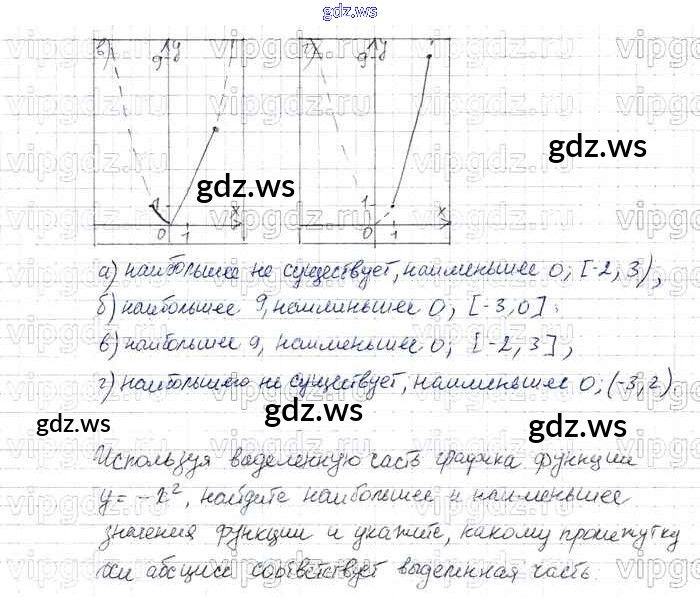 gdz.ws
в) y 9 1 0 1 x
г) y 9 1 0 1 x
gdz.ws
gdz.ws
а) наибольшее не существует, наименьшее 0; [-2; 3),
б) наибольшее 9, наименьшее 0; [-3; 0];
в) наибольшее 9, наименьшее 0; [-2; 3],
г) наибольшего не существует, наименьшее 0; (-3; 2)
gdz.ws
gdz.ws
gdz.ws
Используя выделенную часть графика функции
y = -x², найдите наибольшее и наименьшее
значения функции и укажите, какому промежутку
оси абсцисс соответствует выделенная часть.